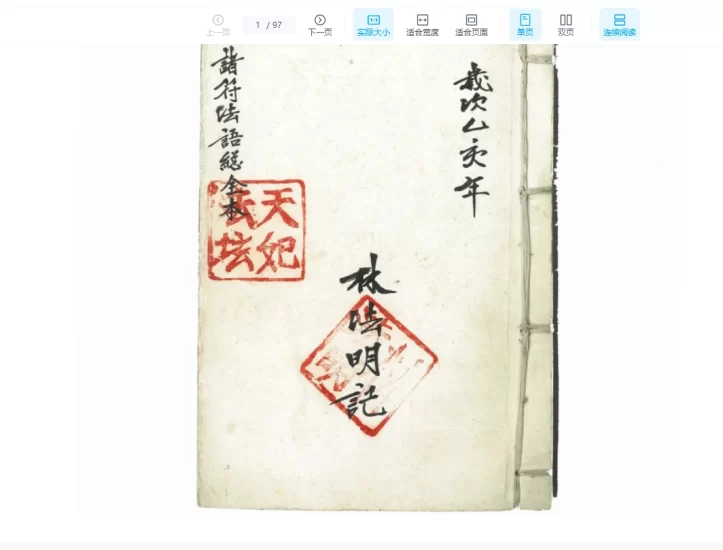 上一页
1 / 97
下一页
实际大小
适合宽度
适合页面
单页
双页
连续阅读
歲次乙亥年
林法明記
諸符法語總全本
天妃
法坛